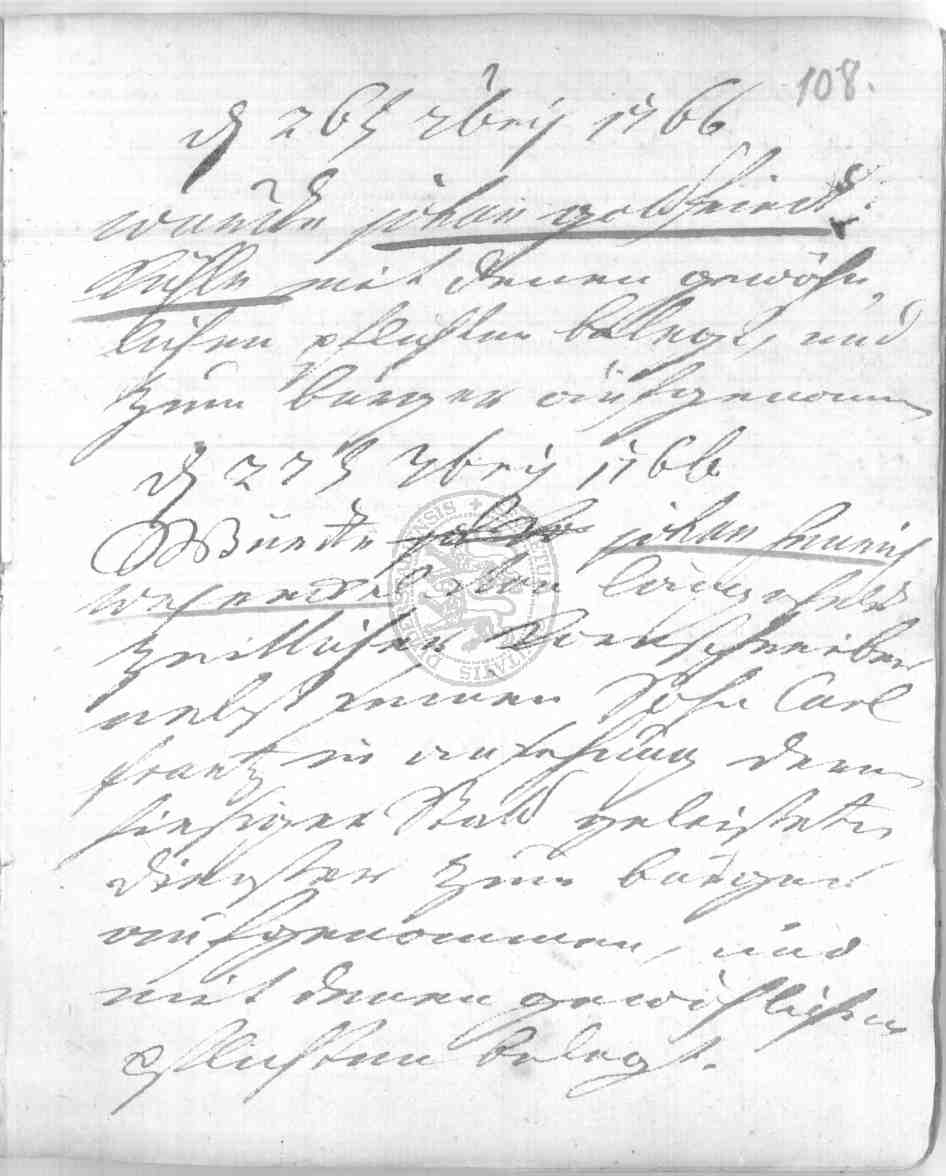 108.
d 26t 7bris 1766
wurde johan gottfried
mit denen gewöhn,
lichen pflichten belegt, und
zum burger aufgenomm
d 27t 7bris 1766
Wurde johan henrich
von
zeitlicher
nebst seinen Sohn Carl
frantz in ansehung deren
hiesiger Stad geleisteten
diensten zum burger
aufgenommen, und
mit denen gewöhlichen
pflichten belegt.